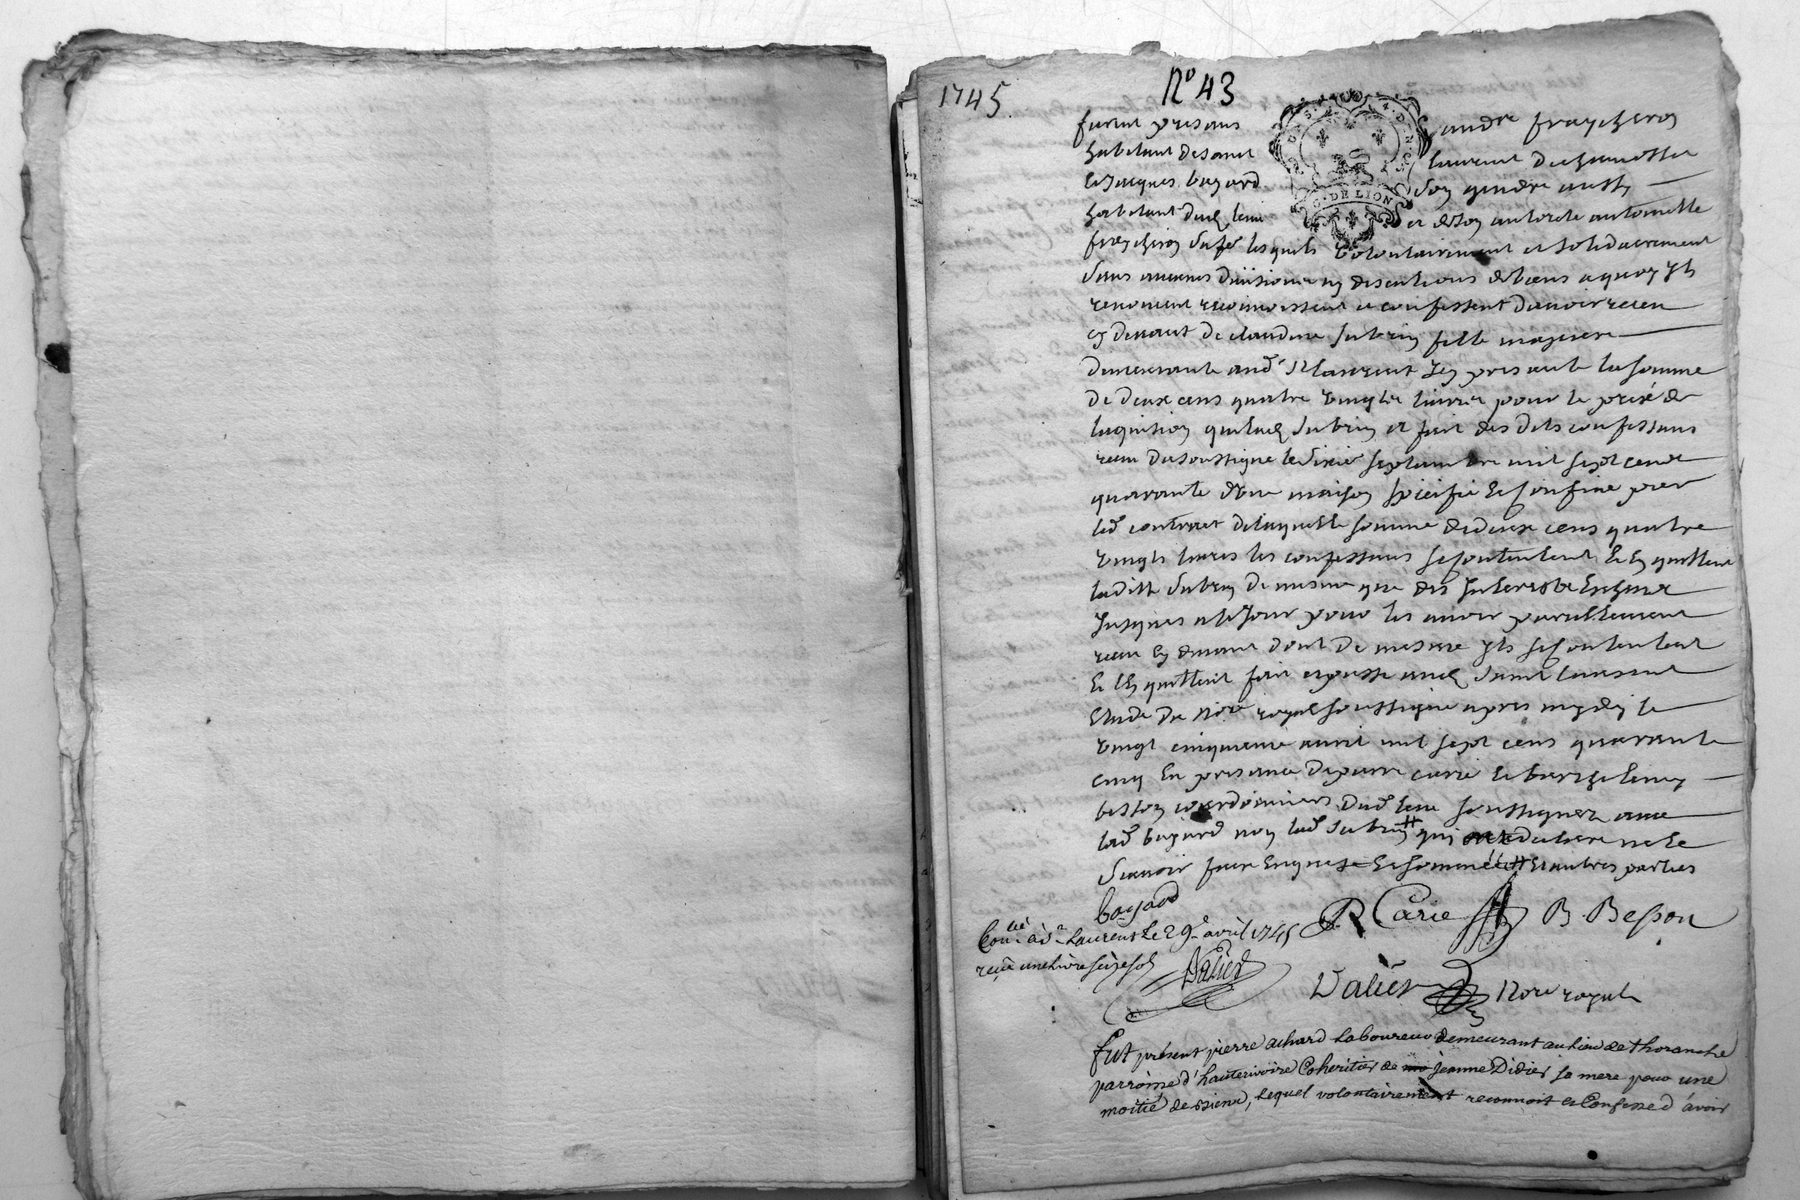 1745
N° 43
furent presans andre fraycheron
habitant de sainct laurent de chamosset
et Jacques bayard son gendre aussy
habitant dud lieu et de son autorite antoinette
fraycheron sa fe lesquels volontairement et solidairement
sans aucunes divisions ny discutions de biens a quoy yls
renoncent reconnoissent et confessent d'avoir receu
cy devant de claudine subrin fille majeure
demeurante aud St laurent Icy presante la somme
de deux cens quatre vingts livres pour le prix de
laquisition que lad subrin et fait des dits confessans
receu du soussigne le sixie septambre mil sept cent
quarante d'une maison speciffie et confine par
led contract de laquelle somme de deux cens quatre
vingts livres les confessans se contentent et en quittent
laditte subrin de mesme que des Interests
Jusques a ce Jour pour les avoir pareillement
receu cy devant dont de mesme yls se contentent
et len quittent fait et passe aud saint laurent
etude du nore royal soussigne apres mydy le
vingt cinquieme avril mil sept cens quarante
cinq en presance de pierre carie et barthelemy
besson cordonniers dud lieu soussignez avec
led bayard non lad subrin qui ont declare ne le
scavoir faire enquise et sommée et autres parties
bayard
R Carie B. Besson
Con.lé à St Laurent Le 29e avril 1745
reçû une Livre seize sols
Valier
Valier Nore royal
fut présent pierre achard Laboureur demeurant au lieu de thoranche
parroisse d'hauterivoire Coheritier de jeanne Didier sa mere pour une
moitié de siens, Lequel volontairement reconnoit et Confesse d'avoir